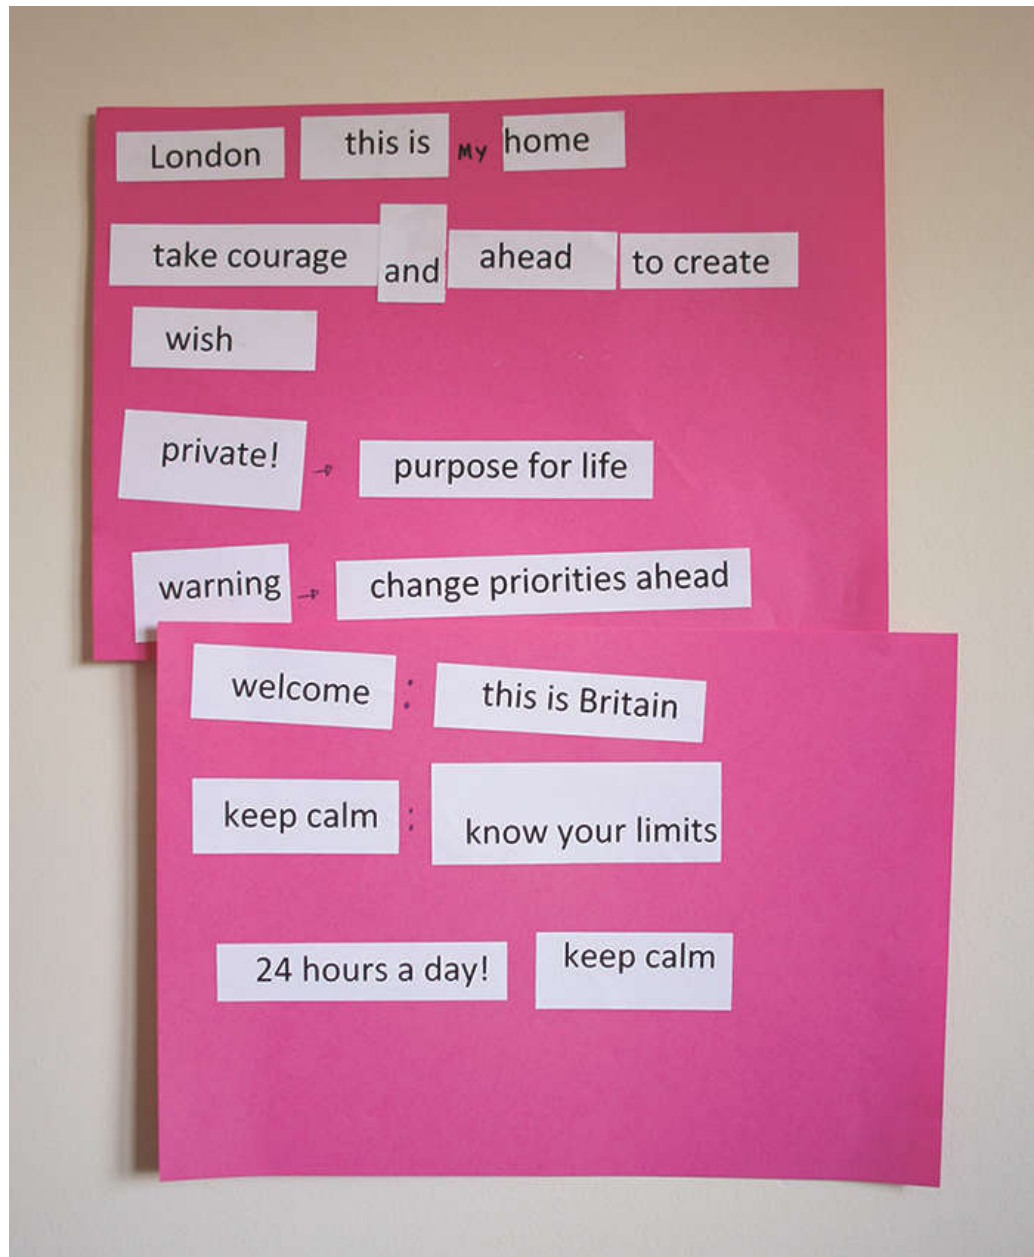 London this is MY home
take courage and ahead to create
wish
private! → purpose for life
warning → change priorities ahead
welcome : this is Britain
keep calm : know your limits
24 hours a day! keep calm